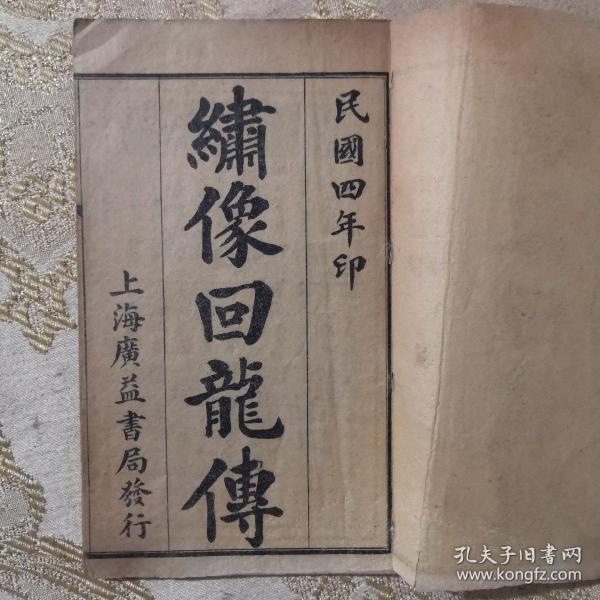 民國四年印
繡像回龍傳
上海廣益書局發行
孔夫子旧書网
www.kongfz.com